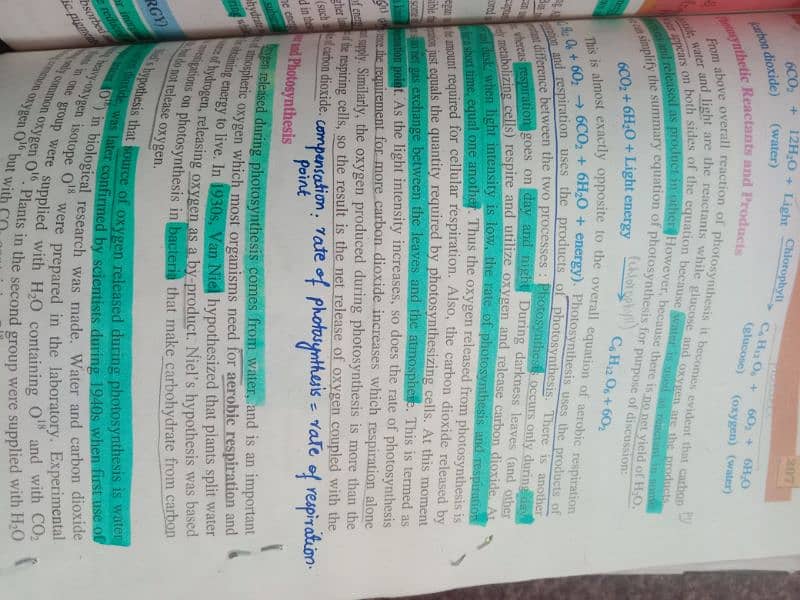 207
6CO₂ + 12H₂O + Light Chlorophyll C₆H₁₂O₆ + 6O₂ + 6H₂O
(carbon dioxide) (water) (glucose) (oxygen) (water)
Photosynthetic Reactants and Products
From above overall reaction of photosynthesis it becomes evident that carbon
water and light are the reactants, while glucose and oxygen are the products.
appears on both sides of the equation because water is used as reactant in some
and released as product in other. However, because there is no net yield of H₂O,
can simplify the summary equation of photosynthesis for purpose of discussion:
6CO₂ + 6H₂O + Light energy (chlorophyll) C₆H₁₂O₆ + 6O₂
This is almost exactly opposite to the overall equation of aerobic respiration
O₆ + 6O₂ → 6CO₂ + 6H₂O + energy). Photosynthesis uses the products of
respiration and respiration uses the products of photosynthesis. There is another
difference between the two processes : photosynthesis occurs only during day
where respiration goes on day and night. During darkness leaves (and other
metabolizing cells) respire and utilize oxygen and release carbon dioxide. At
and dusk, when light intensity is low, the rate of photosynthesis and respiration
for a short time, equal one another. Thus the oxygen released from photosynthesis is
the amount required for cellular respiration. Also, the carbon dioxide released by
just equals the quantity required by photosynthesizing cells. At this moment
no net gas exchange between the leaves and the atmosphere. This is termed as
compensation point. As the light intensity increases, so does the rate of photosynthesis
the requirement for more carbon dioxide increases which respiration alone
supply. Similarly, the oxygen produced during photosynthesis is more than the
of the respiring cells, so the result is the net release of oxygen coupled with the
of carbon dioxide.
compensation : rate of photosynthesis = rate of respiration.
point
and Photosynthesis
oxygen released during photosynthesis comes from water, and is an important
of atmospheric oxygen which most organisms need for aerobic respiration and
obtaining energy to live. In 1930s, Van Niel hypothesized that plants split water
of hydrogen, releasing oxygen as a by-product. Niel's hypothesis was based
investigations on photosynthesis in bacteria that make carbohydrate from carbon
do not release oxygen.
hypothesis that source of oxygen released during photosynthesis is water
was later confirmed by scientists during 1940s when first use of
(O¹⁸) in biological research was made. Water and carbon dioxide
oxygen isotope O¹⁸ were prepared in the laboratory. Experimental
one group were supplied with H₂O containing O¹⁸ and with CO₂
common oxygen O¹⁶. Plants in the second group were supplied with H₂O
oxygen O¹⁶ but with CO₂